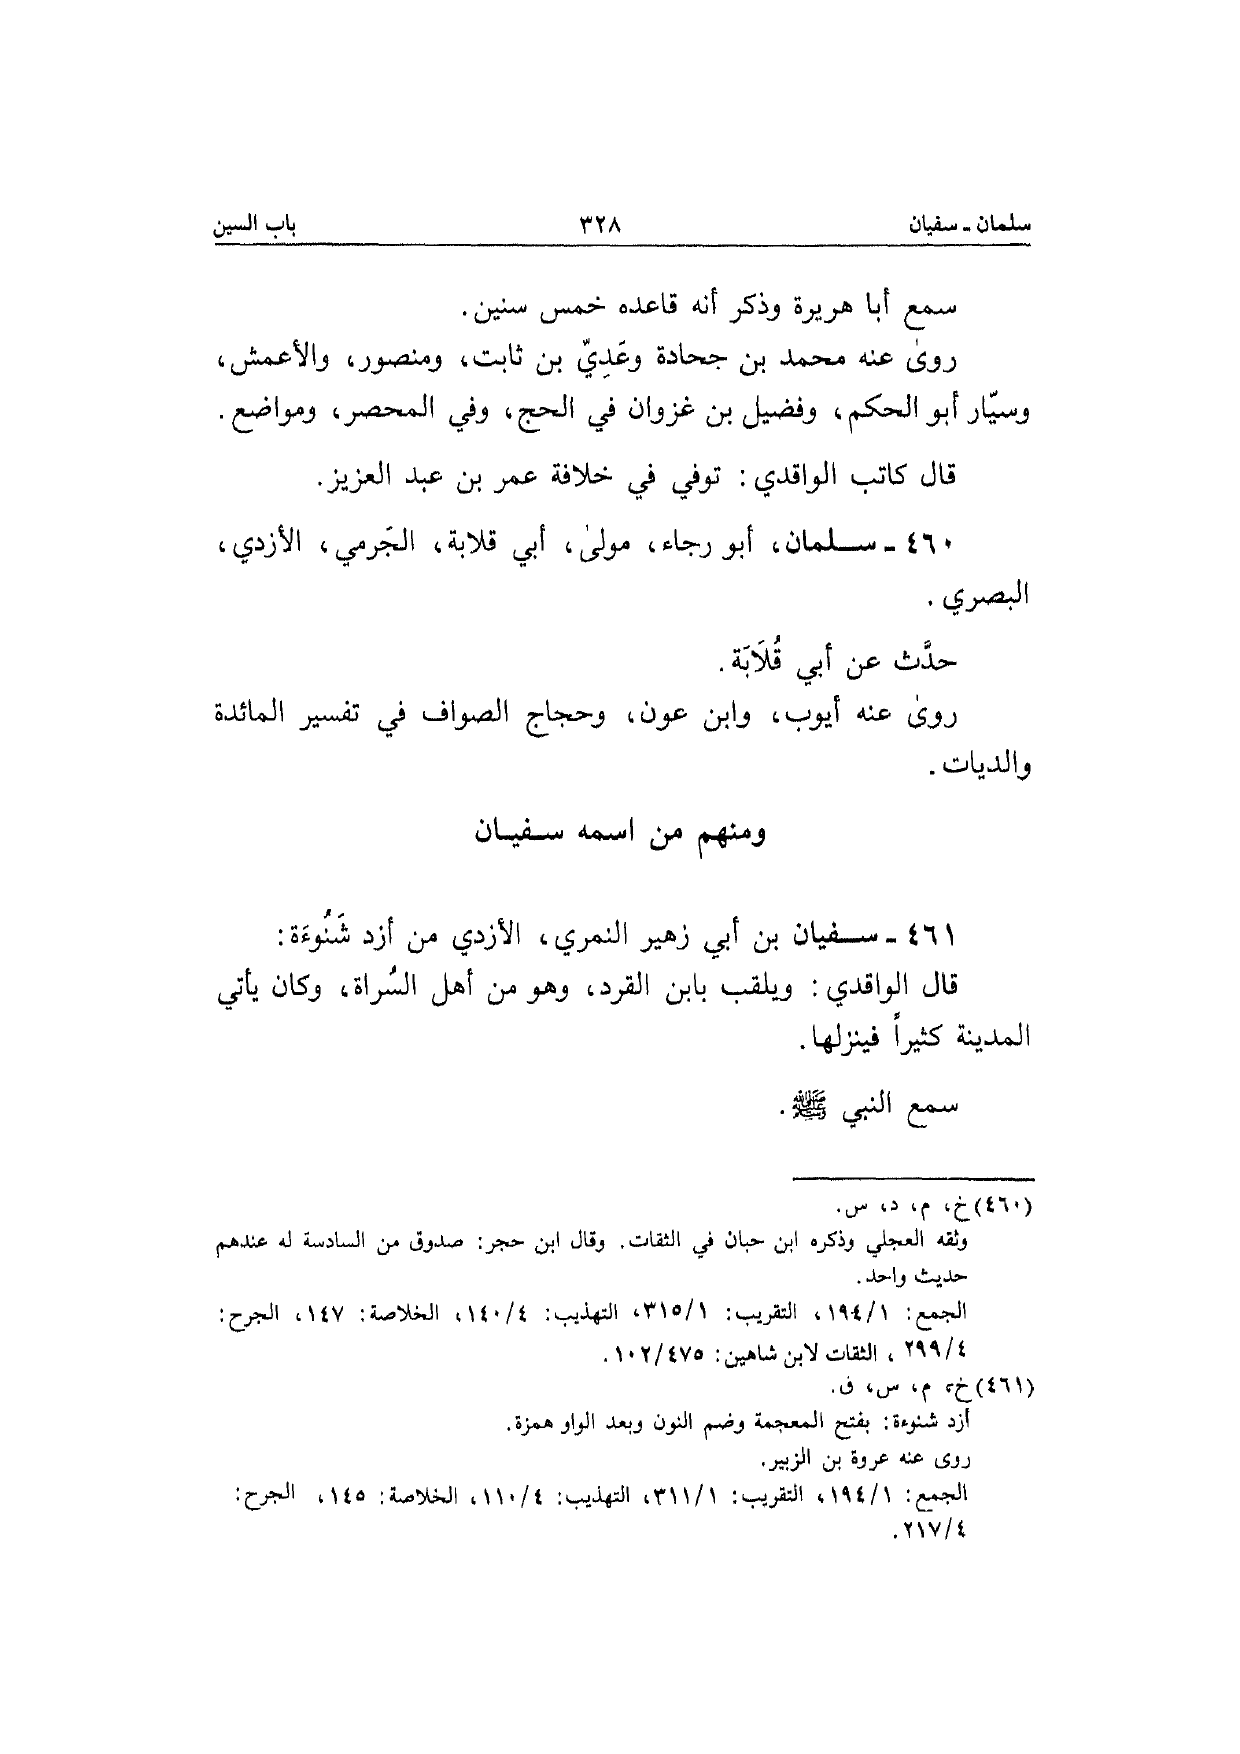 سلمان - سفيان ٣٢٨ باب السين
سمع أبا هريرة وذكر أنه قاعده خمس سنين.
روىٰ عنه محمد بن جحادة وعَدِيّ بن ثابت، ومنصور، والأعمش،
وسيّار أبو الحكم، وفضيل بن غزوان في الحج، وفي المحصر، ومواضع.
قال كاتب الواقدي: توفي في خلافة عمر بن عبد العزيز.
٤٦٠ - سلمان، أبو رجاء، مولىٰ، أبي قلابة، الجَرمي، الأزدي،
البصري.
حدَّث عن أبي قُلَابَة.
روىٰ عنه أيوب، وابن عون، وحجاج الصواف في تفسير المائدة
والديات.
ومنهم من اسمه سفيان
٤٦١ - سفيان بن أبي زهير النمري، الأزدي من أزد شَنُوءَة:
قال الواقدي: ويلقب بابن القرد، وهو من أهل السُراة، وكان يأتي
المدينة كثيراً فينزلها.
سمع النبي ﷺ.
(٤٦٠) خ، م، د، س.
وثقه العجلي وذكره ابن حبان في الثقات. وقال ابن حجر: صدوق من السادسة له عندهم
حديث واحد.
الجمع: ١/١٩٤، التقريب: ١/٣١٥، التهذيب: ٤/١٤٠، الخلاصة: ١٤٧، الجرح:
٤/٢٩٩، الثقات لابن شاهين: ٤٧٥/١٠٢.
(٤٦١) خ، م، س، ق.
أزد شنوءة: بفتح المعجمة وضم النون وبعد الواو همزة.
روى عنه عروة بن الزبير.
الجمع: ١/١٩٤، التقريب: ١/٣١١، التهذيب: ٤/١١٠، الخلاصة: ١٤٥، الجرح:
٤/٢١٧.